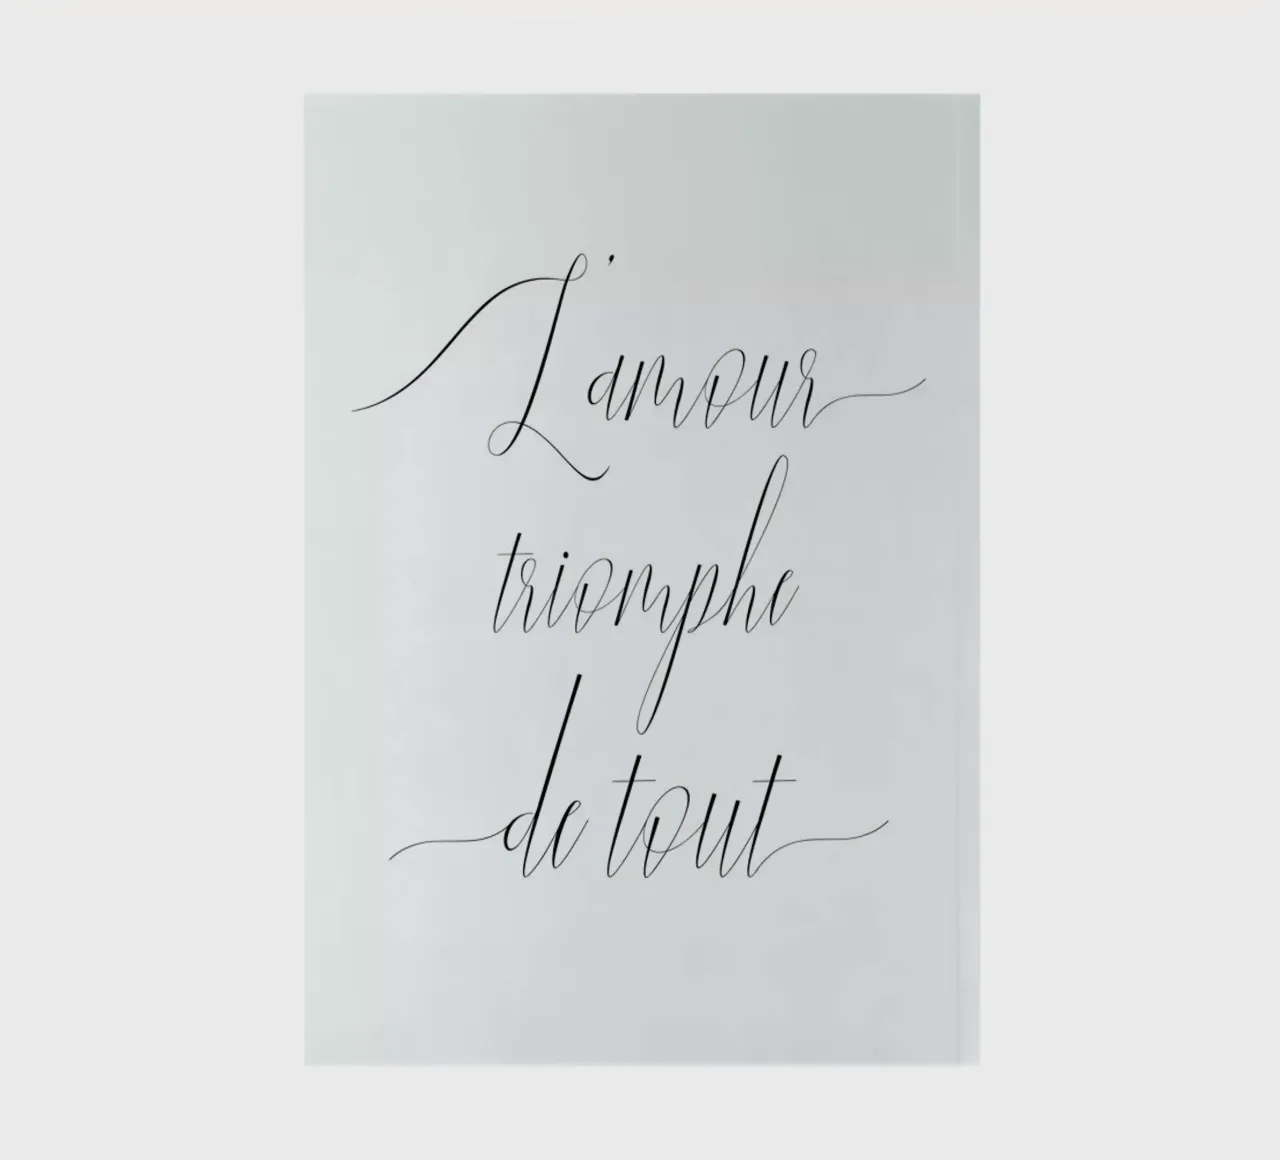 L'amour
triomphe
de tout